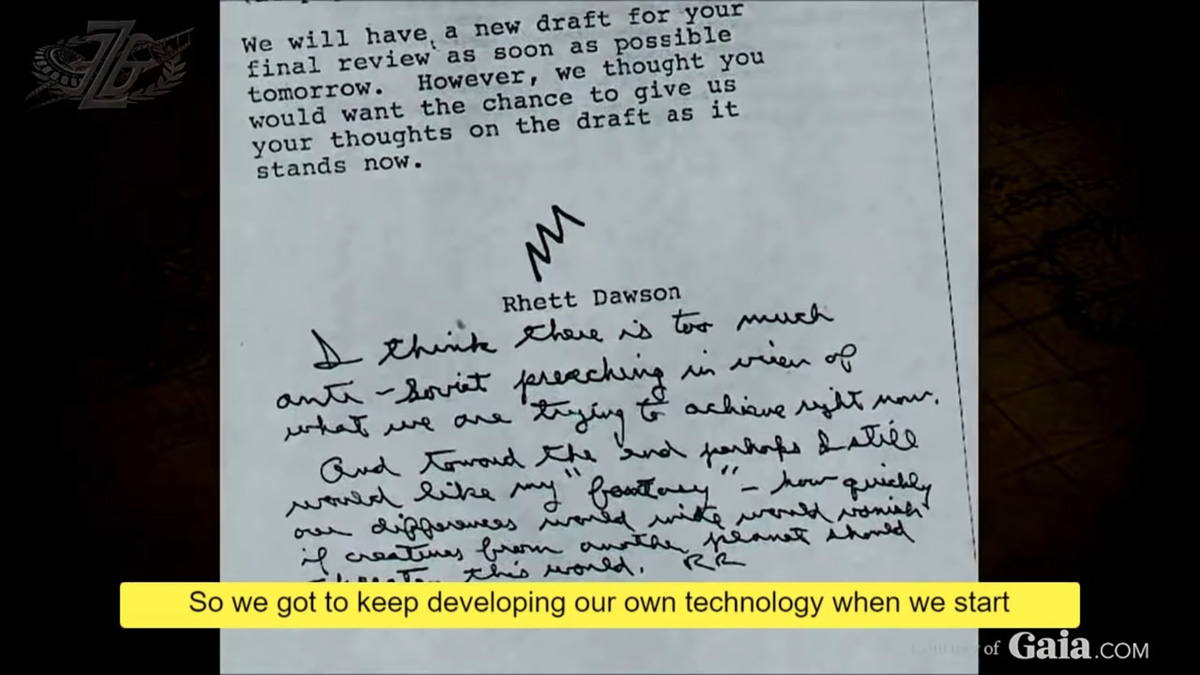 We will have a new draft for your
final review as soon as possible
tomorrow. However, we thought you
would want the chance to give us
your thoughts on the draft as it
stands now.
Rhett Dawson
I think there is too much
anti-Soviet preaching in view of
what we are trying to achieve right now.
And toward the end perhaps I still
would like my "fantasy" - how quickly
our differences world wide would vanish
if creatures from another planet should
this world. RR
So we got to keep developing our own technology when we start
Courtesy of Gaia.COM